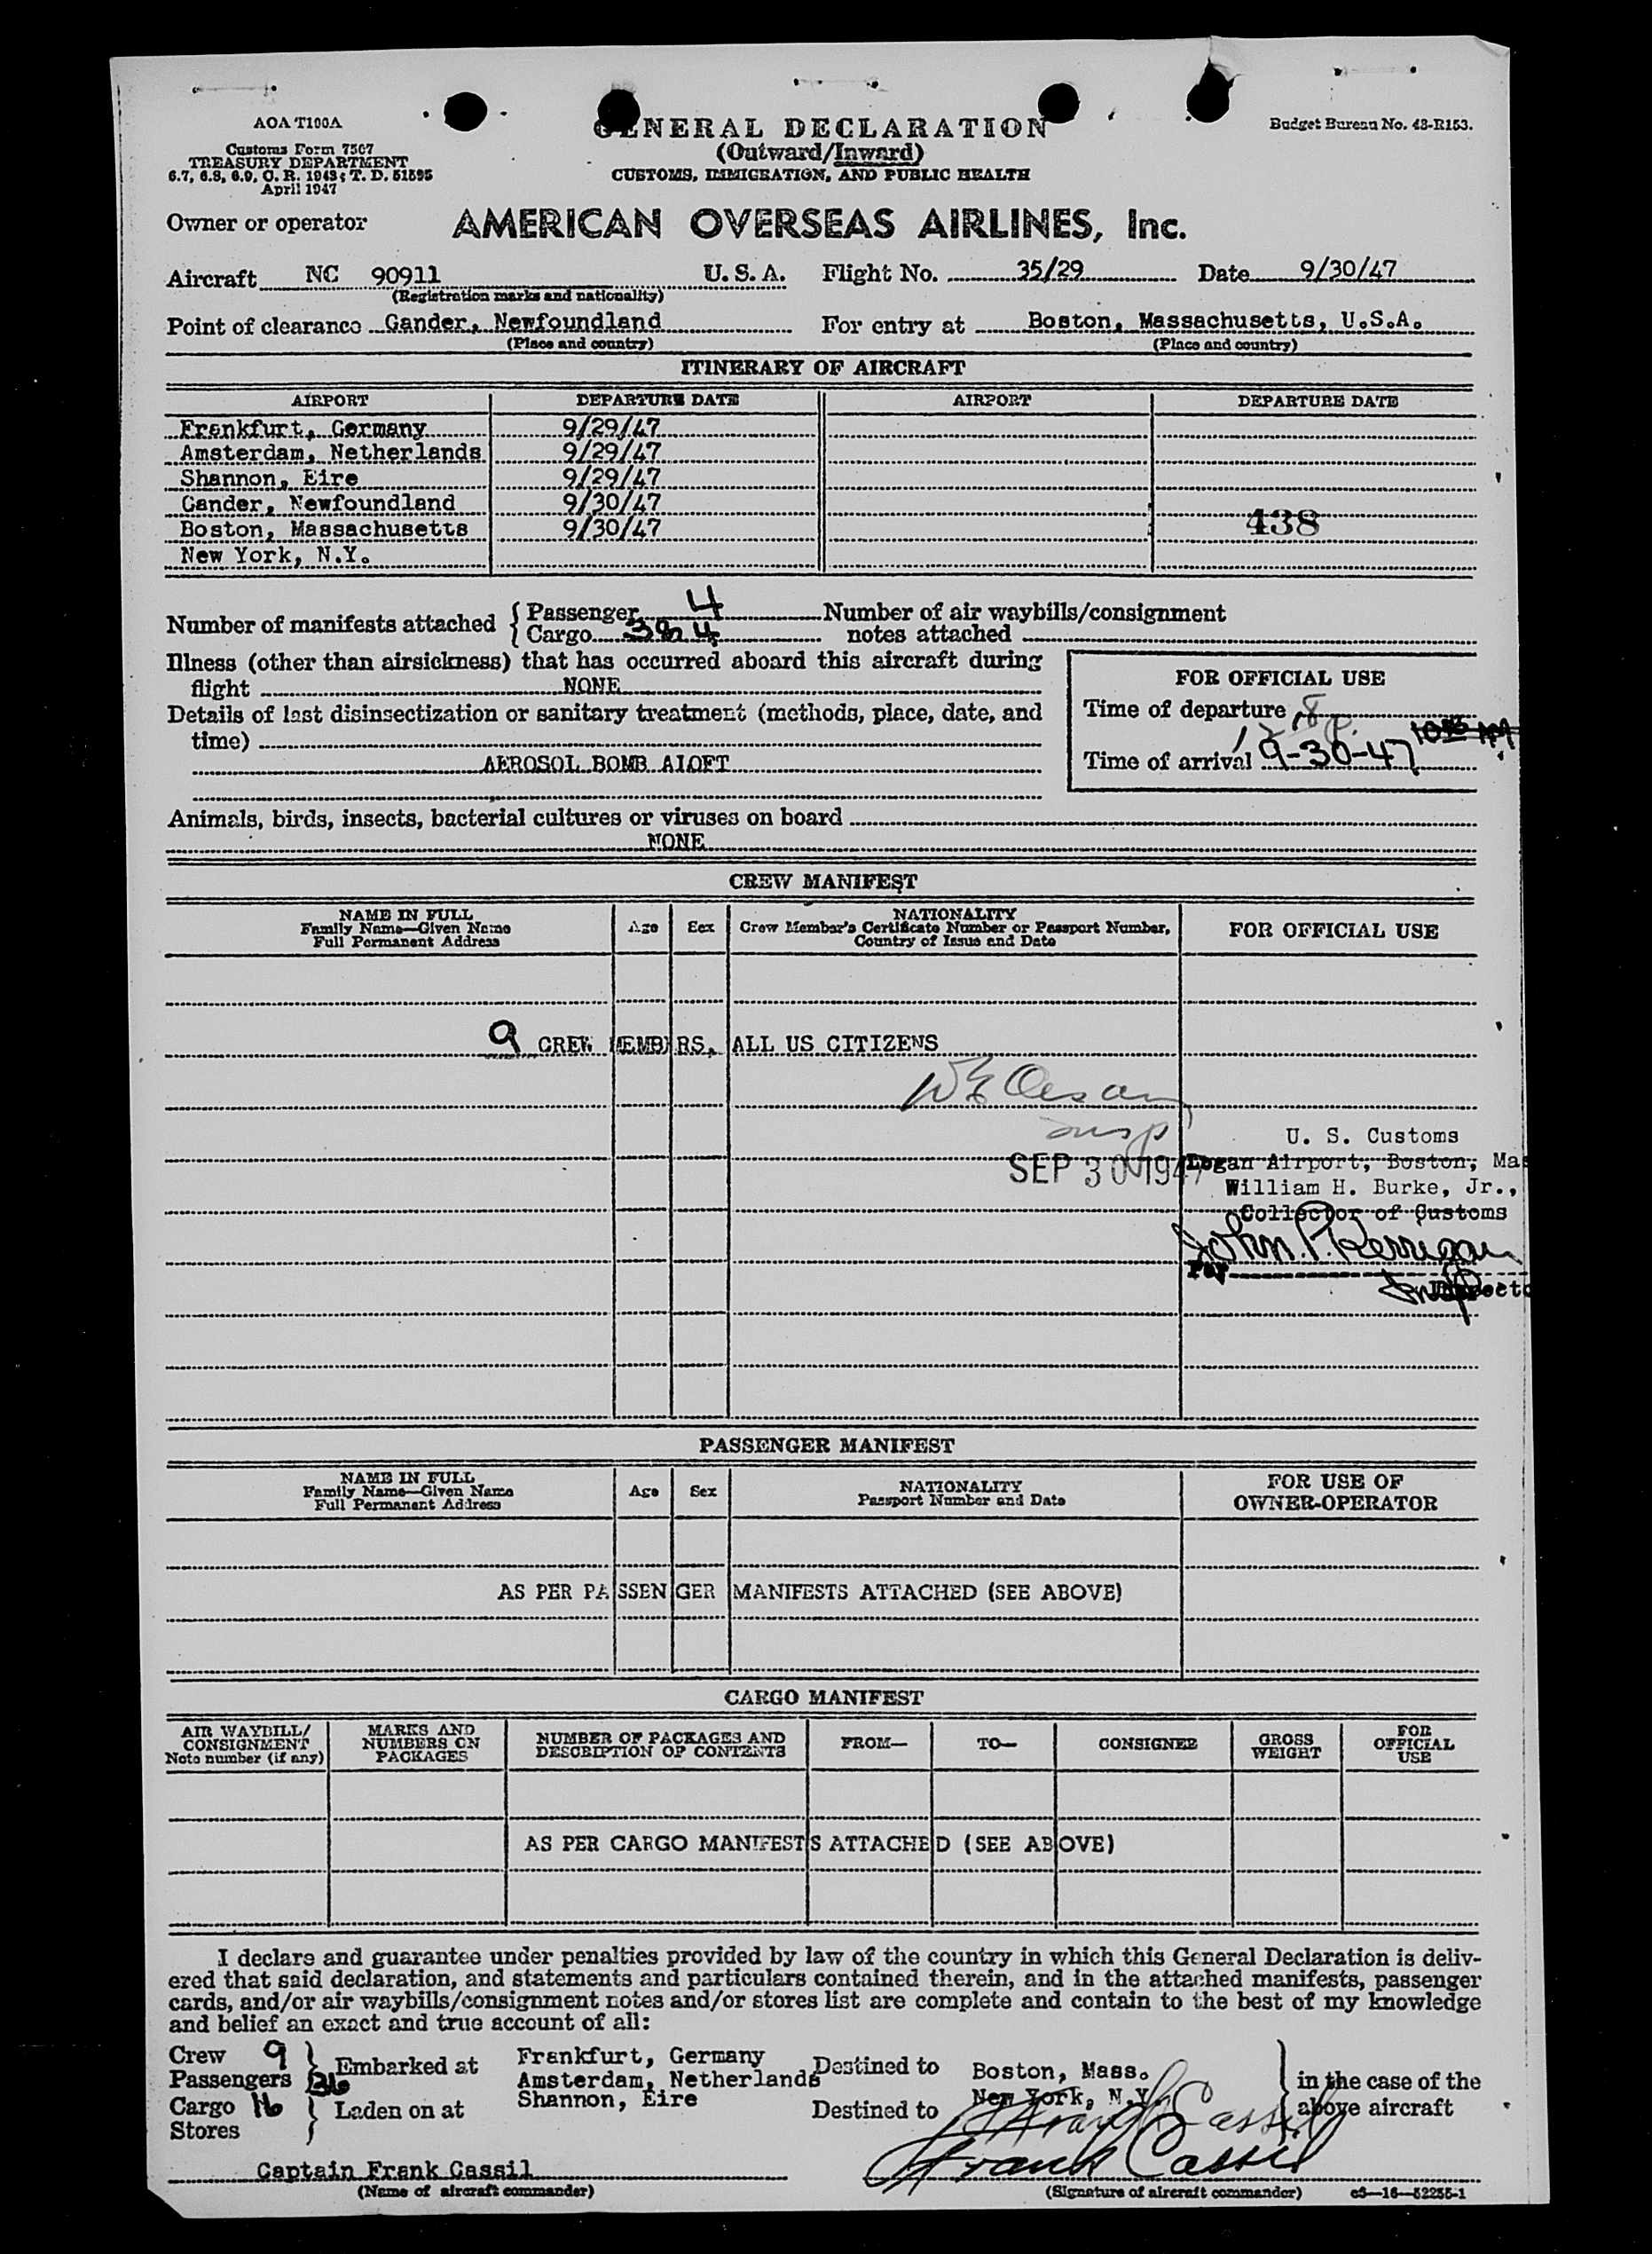 AOA T100A
Customs Form 7507
TREASURY DEPARTMENT
6.7, 6.8, 6.9, C. R. 1943; T. D. 51595
April 1947
GENERAL DECLARATION
(Outward/Inward)
CUSTOMS, IMMIGRATION, AND PUBLIC HEALTH
Budget Bureau No. 43-R153.
Owner or operator AMERICAN OVERSEAS AIRLINES, Inc.
Aircraft NC 90911 U. S. A. Flight No. 35/29 Date 9/30/47
(Registration marks and nationality)
Point of clearance Gander, Newfoundland For entry at Boston, Massachusetts, U.S.A.
(Place and country) (Place and country)
ITINERARY OF AIRCRAFT
AIRPORT DEPARTURE DATE AIRPORT DEPARTURE DATE
Frankfurt, Germany 9/29/47
Amsterdam, Netherlands 9/29/47
Shannon, Eire 9/29/47
Gander, Newfoundland 9/30/47
Boston, Massachusetts 9/30/47 438
New York, N.Y.
Number of manifests attached { Passenger 4 Number of air waybills/consignment
Cargo notes attached
Illness (other than airsickness) that has occurred aboard this aircraft during
flight NONE
Details of last disinsectization or sanitary treatment (methods, place, date, and
time)
AEROSOL BOMB ALOFT
FOR OFFICIAL USE
Time of departure
Time of arrival 9-30-47
Animals, birds, insects, bacterial cultures or viruses on board
NONE
CREW MANIFEST
NAME IN FULL
Family Name—Given Name
Full Permanent Address
Age Sex
NATIONALITY
Crew Member's Certificate Number or Passport Number,
Country of Issue and Date
FOR OFFICIAL USE
9 CREW MEMBERS, ALL US CITIZENS
Insp
SEP 30 1947
U. S. Customs
Logan Airport, Boston, Mas
William H. Burke, Jr.,
Collector of Customs
John P. Kerrigan
Per
Inspecto
PASSENGER MANIFEST
NAME IN FULL
Family Name—Given Name
Full Permanent Address
Age Sex
NATIONALITY
Passport Number and Date
FOR USE OF
OWNER-OPERATOR
AS PER PASSENGER MANIFESTS ATTACHED (SEE ABOVE)
CARGO MANIFEST
AIR WAYBILL/
CONSIGNMENT
Note number (if any)
MARKS AND
NUMBERS ON
PACKAGES
NUMBER OF PACKAGES AND
DESCRIPTION OF CONTENTS
FROM— TO— CONSIGNEE
GROSS
WEIGHT
FOR
OFFICIAL
USE
AS PER CARGO MANIFESTS ATTACHED (SEE ABOVE)
I declare and guarantee under penalties provided by law of the country in which this General Declaration is deliv-
ered that said declaration, and statements and particulars contained therein, and in the attached manifests, passenger
cards, and/or air waybills/consignment notes and/or stores list are complete and contain to the best of my knowledge
and belief an exact and true account of all:
Crew 9
Passengers 36
Embarked at
Cargo 16
Stores
Laden on at
Frankfurt, Germany
Amsterdam, Netherlands
Shannon, Eire
Destined to
Destined to
Boston, Mass.
New York, N.Y.
in the case of the
above aircraft
Frank Cassil
Captain Frank Cassil Frank Cassil
(Name of aircraft commander) (Signature of aircraft commander) c3—16—52255-1